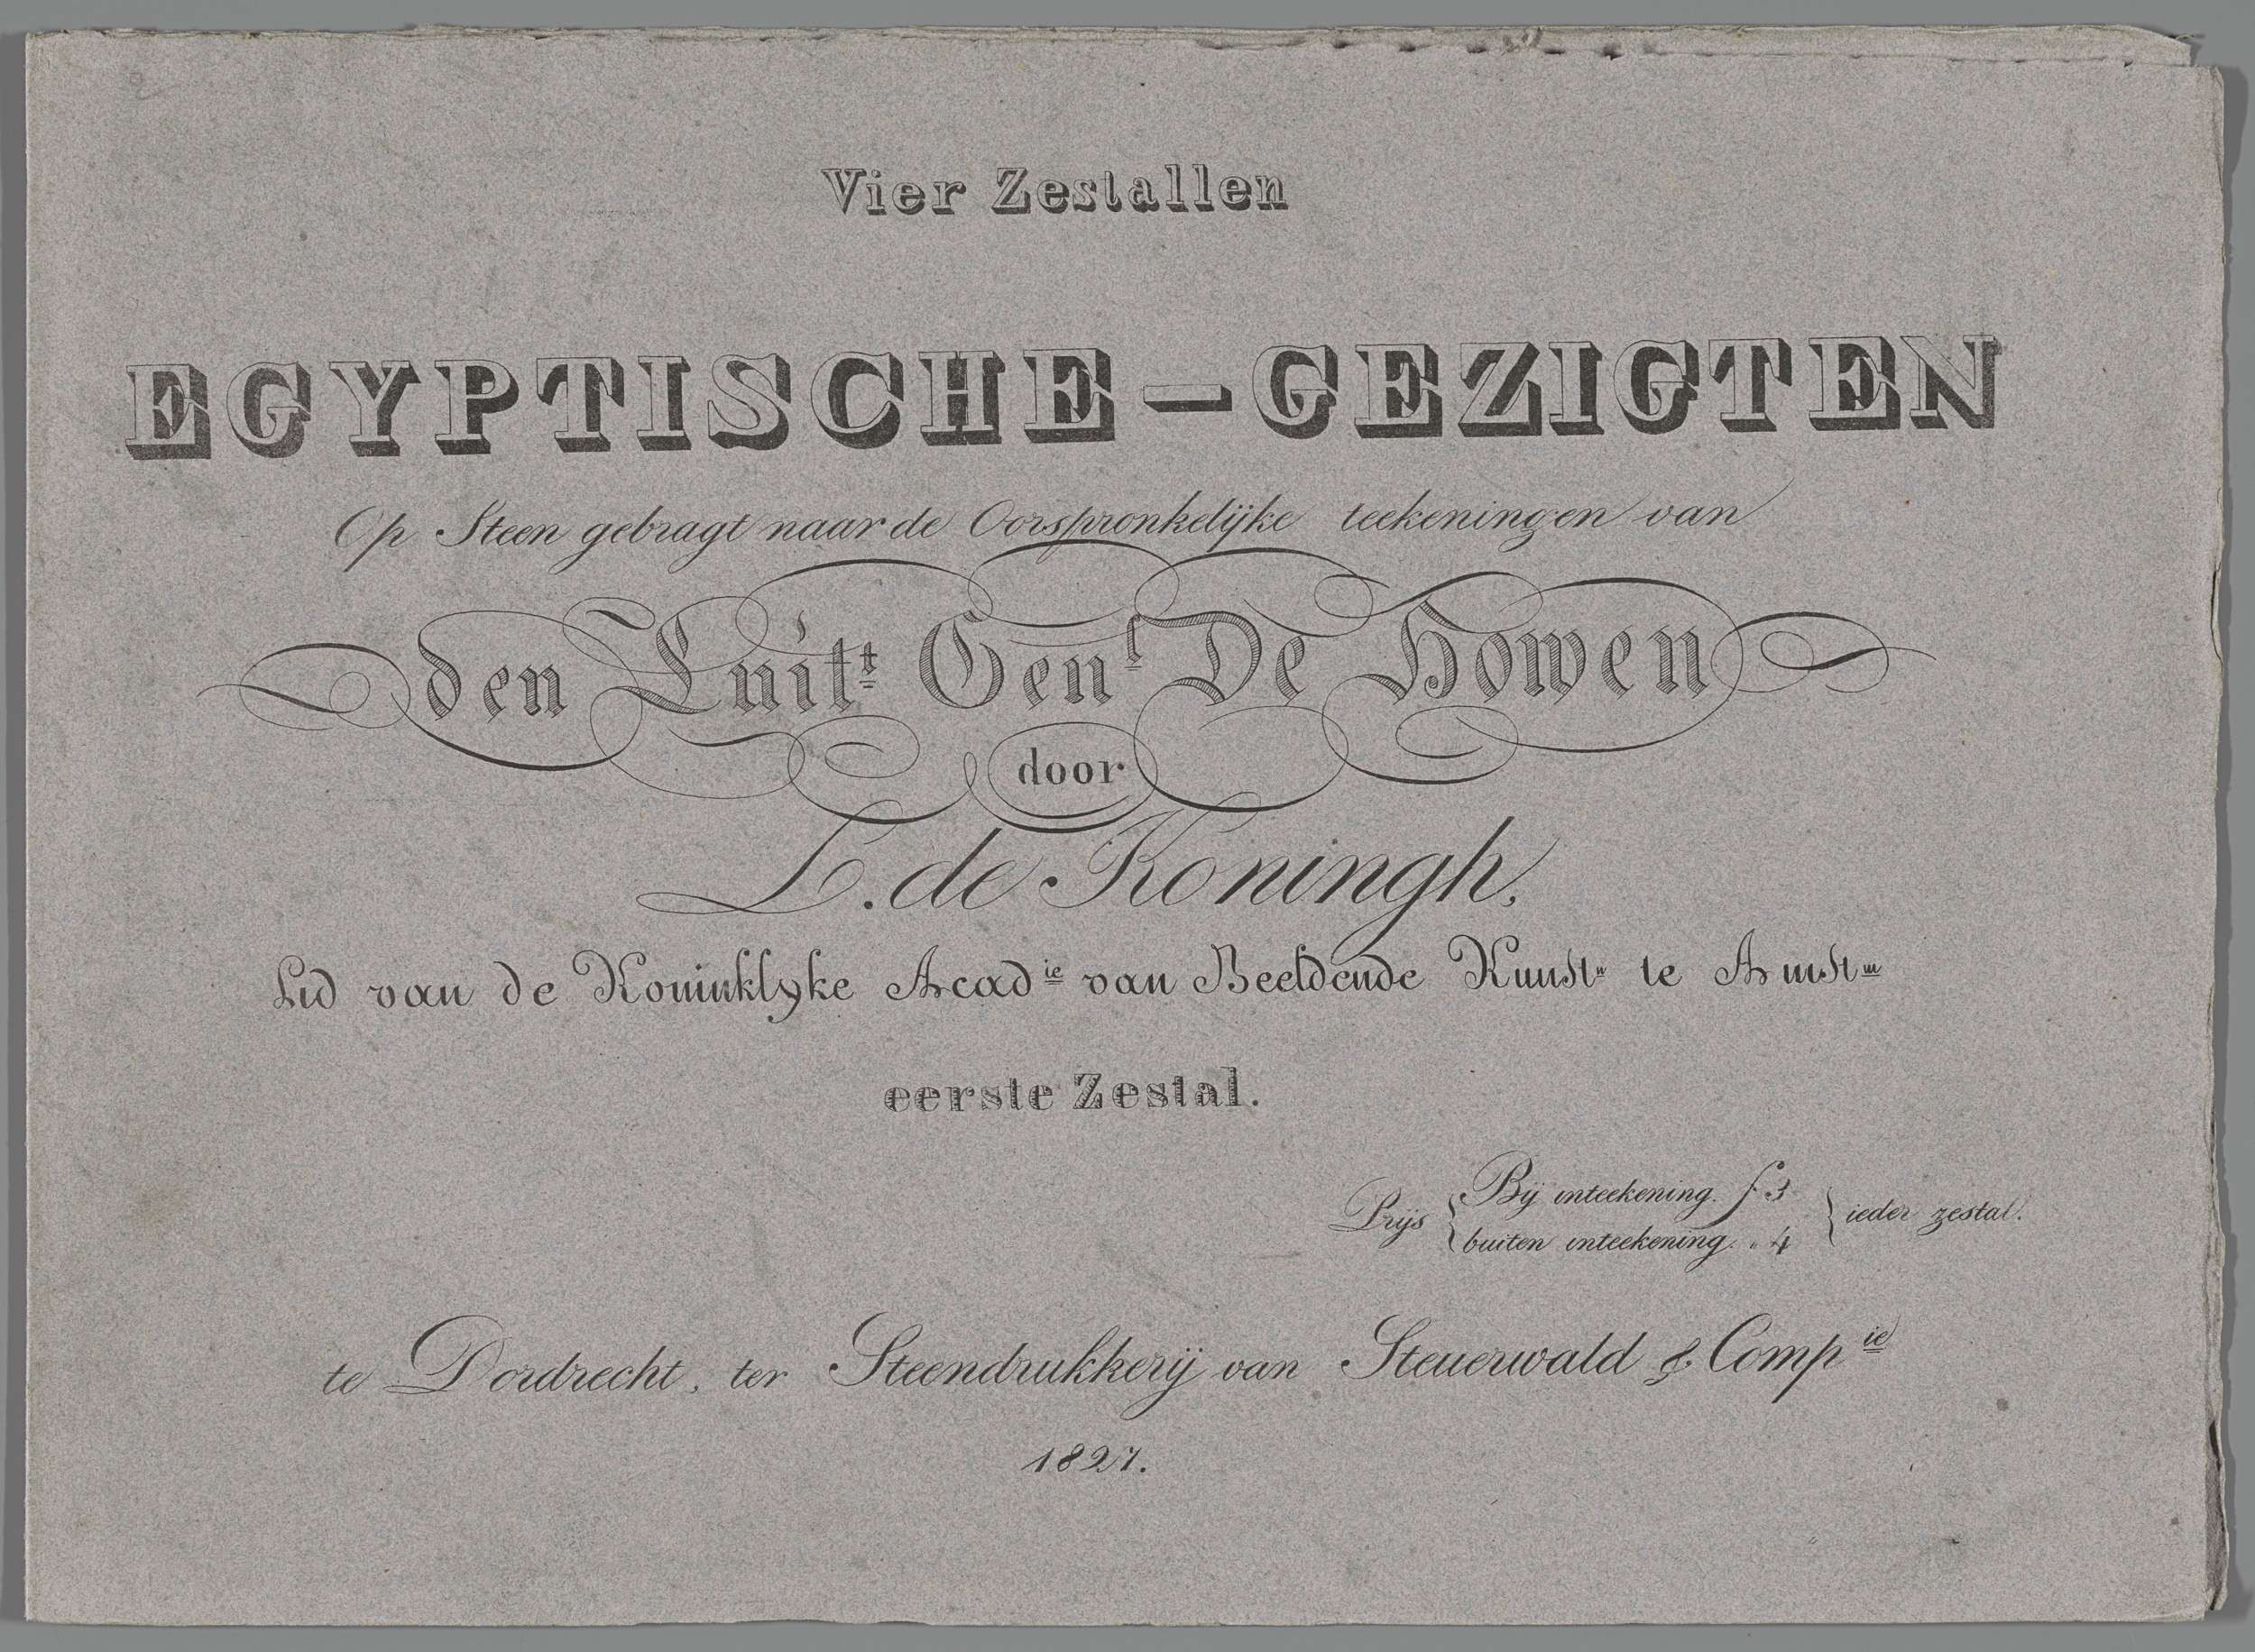 Vier Zestallen
EGYPTISCHE-GEZIGTEN
Op Steen gebragt naar de Oorspronkelijke teekeningen van
den Luitt Genl De Howen
door
L. de Koningh,
Lid van de Koninklyke Acadie van Beeldende Kunstn te Amstm
eerste Zestal.
Prijs { Bij inteekening. f 3 } ieder zestal.
buiten inteekening. „ 4
te Dordrecht, ter Steendrukkerij van Steuerwald & Compie
1827.